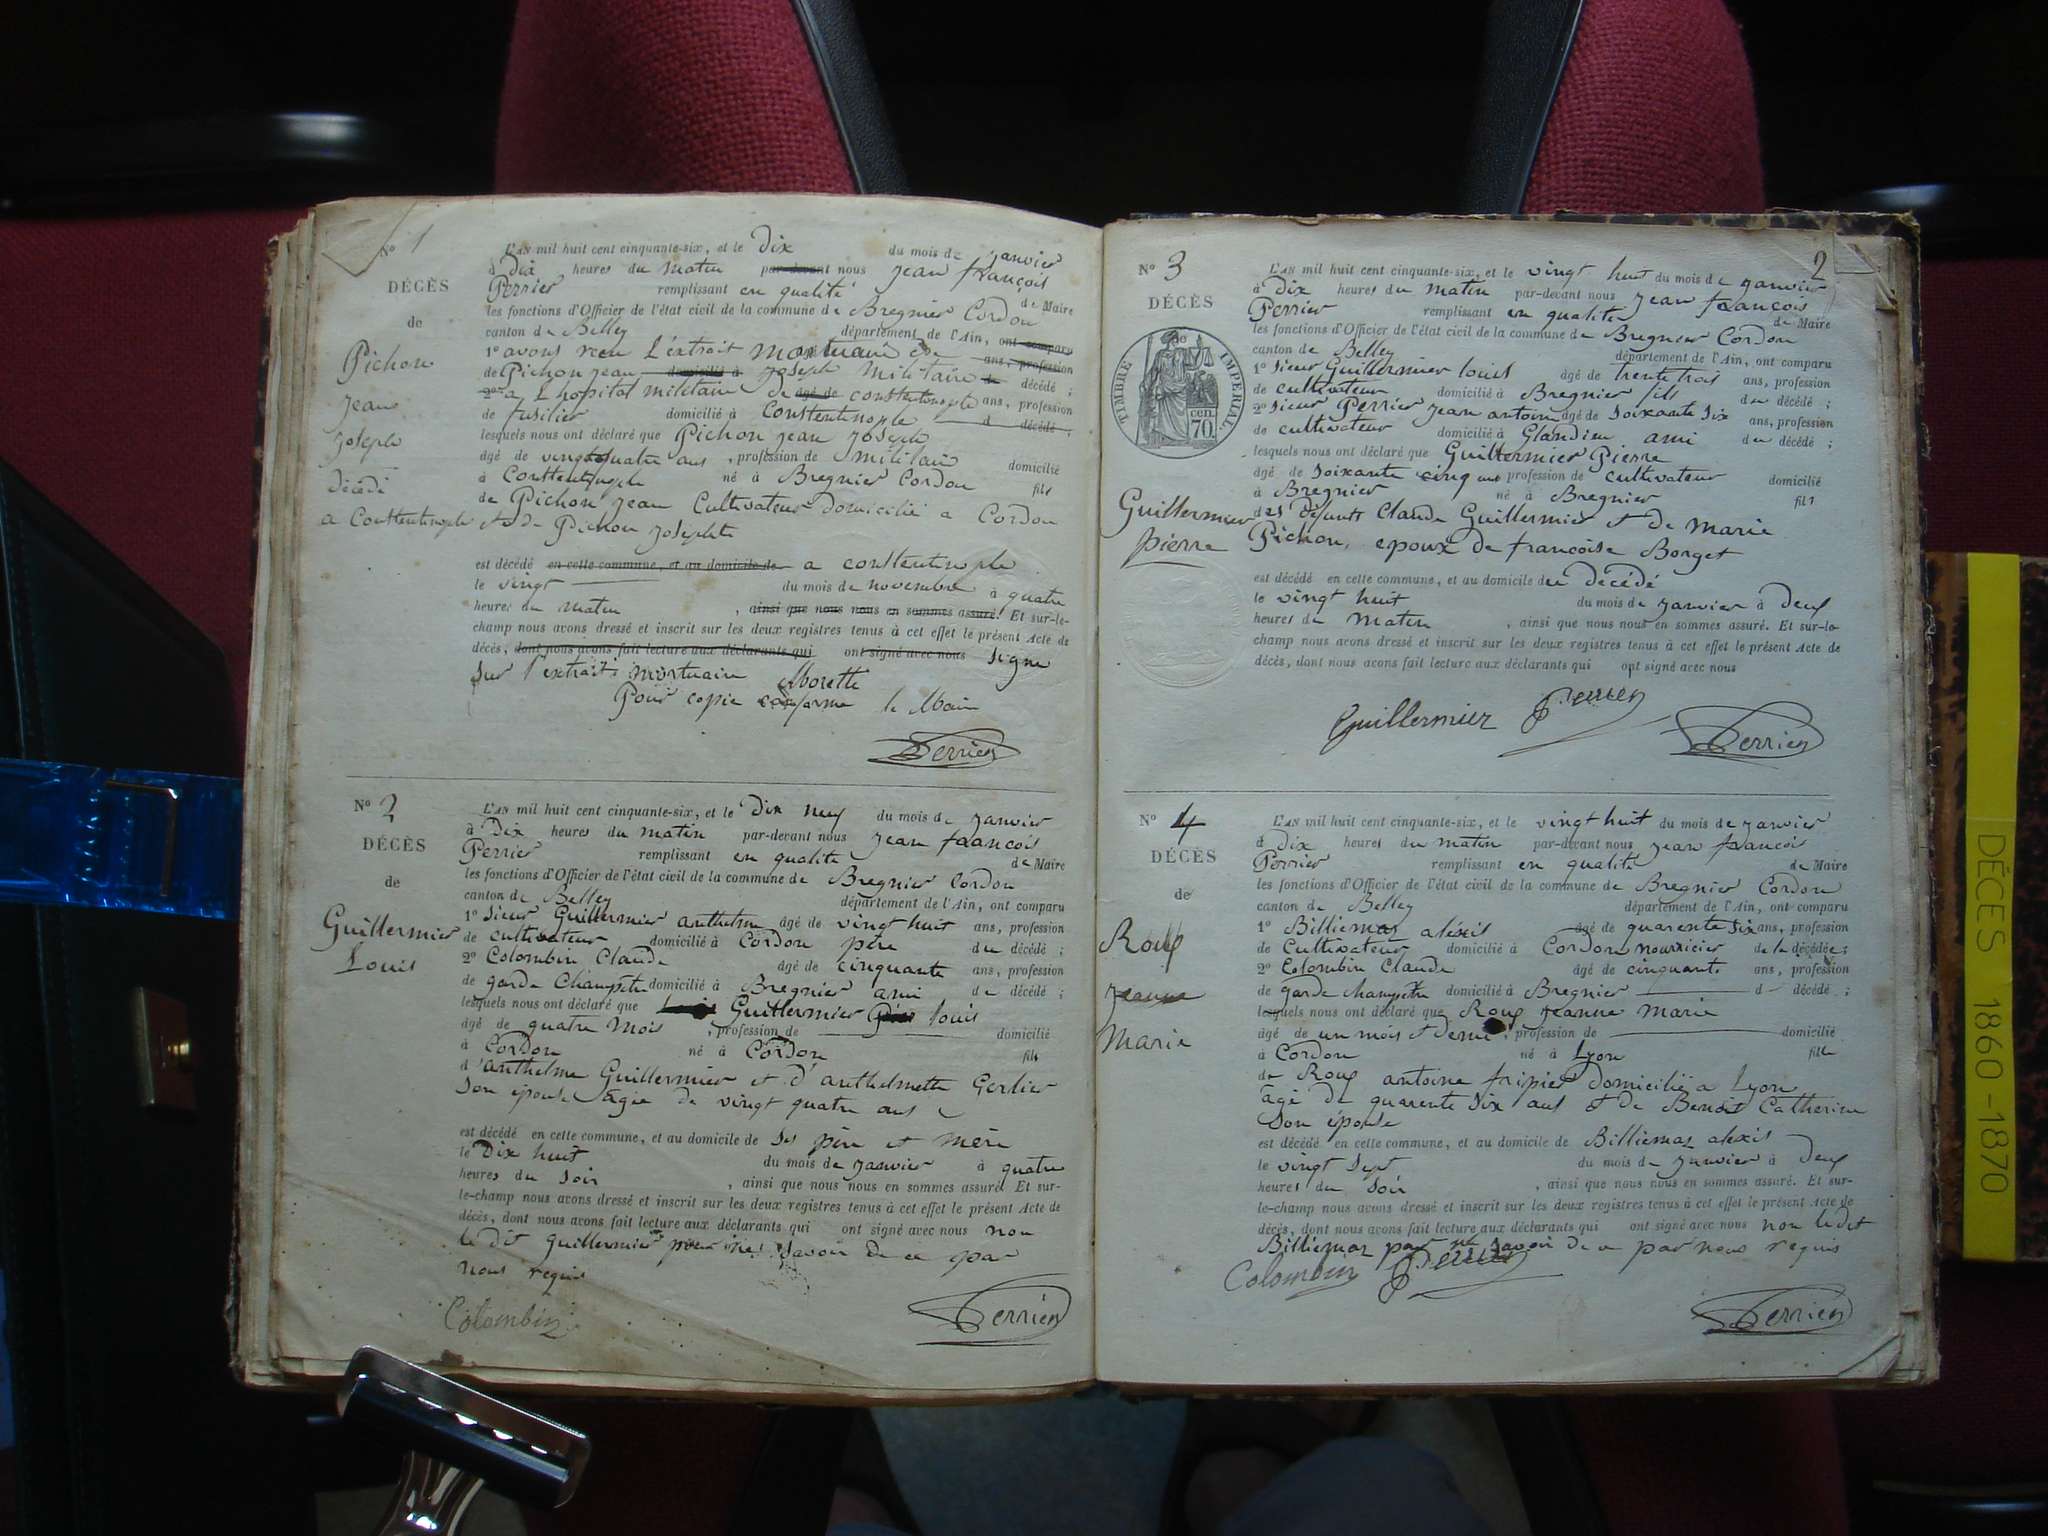 N° 1
DÉCÈS
de
Pichon
Jean
Joseph
décédé
a Constentinople
L'AN mil huit cent cinquante-six, et le Dix du mois de janvier
à Dix heures du matin par-devant nous Jean françois
Perrier remplissant en qualité de Maire
les fonctions d'Officier de l'état civil de la commune de Bregnier Cordon
canton de Belley département de l'Ain, ont comparu
1° avons recu L'extrait mortuaire ans, profession
de Pichon jean domicilié à Joseph militaire décédé ;
2° a L'hopital militaire de âgé de constentinople ans, profession
de fusilier domicilié à Constentinople d décédé ;
lesquels nous ont déclaré que Pichon jean Joseph
âgé de vingt quatre ans , profession de militaire domicilié
à Constentinople né à Bregnier Cordon fils
de Pichon jean Cultivateur domicilié a Cordon
et de Pichon Josephte
est décédé en cette commune, et au domicile de a constentinople
le vingt du mois de novembre à quatre
heures du matin , ainsi que nous nous en sommes assuré. Et sur-le-
champ nous avons dressé et inscrit sur les deux registres tenus à cet effet le présent Acte de
décès, dont nous avons fait lecture aux déclarants qui ont signé avec nous signe
sur l'extrait mortuaire Morette
Pour copie conforme le Maire
Perrier
N° 2
DÉCÈS
de
Guillermier
Louis
L'AN mil huit cent cinquante-six, et le Dix neuf du mois de janvier
à Dix heures du matin par-devant nous Jean françois
Perrier remplissant en qualité de Maire
les fonctions d'Officier de l'état civil de la commune de Bregnier Cordon
canton de Belley département de l'Ain, ont comparu
1° Sieur Guillermier anthelme âgé de vingt huit ans, profession
de cultivateur domicilié à Cordon père du décédé ;
2° Colombin Claude âgé de cinquante ans, profession
de garde Champetre domicilié à Bregnier ami du décédé ;
lesquels nous ont déclaré que Guillermier louis
âgé de quatre mois , profession de domicilié
à Cordon né à Cordon fils
d'anthelme Guillermier et d'anthelmette Gerlier
son épouse agée de vingt quatre ans
est décédé en cette commune, et au domicile de ses père et mère
le Dix huit du mois de janvier à quatre
heures du soir , ainsi que nous nous en sommes assuré. Et sur-
le-champ nous avons dressé et inscrit sur les deux registres tenus à cet effet le présent Acte de
décès, dont nous avons fait lecture aux déclarants qui ont signé avec nous non
le dit guillermier pour ne savoir de ce par
nous requis
Colombin
Perrier
2
N° 3
DÉCÈS
TIMBRE IMPÉRIAL
cen.
70.
Guillermier
Pierre
L'AN mil huit cent cinquante-six, et le vingt huit du mois de janvier
à Dix heures du matin par-devant nous Jean françois
Perrier remplissant en qualité de Maire
les fonctions d'Officier de l'état civil de la commune de Bregnier Cordon
canton de Belley département de l'Ain, ont comparu
1° Sieur Guillermier louis âgé de trente trois ans, profession
de cultivateur domicilié à Bregnier fils du décédé ;
2° Sieur Perrier Jean antoine âgé de soixante six ans, profession
de cultivateur domicilié à Glandieu ami du décédé ;
lesquels nous ont déclaré que Guillermier Pierre
âgé de soixante cinq ans profession de cultivateur domicilié
à Bregnier né à Bregnier fils
des défunts Claude Guillermier et de marie
Pichon, epoux de francoise Borget
est décédé en cette commune, et au domicile du Décédé
le vingt huit du mois de janvier à deux
heures du matin , ainsi que nous nous en sommes assuré. Et sur-le-
champ nous avons dressé et inscrit sur les deux registres tenus à cet effet le présent Acte de
décès, dont nous avons fait lecture aux déclarants qui ont signé avec nous
Guillermier Perrier
Perrier
N° 4
DÉCÈS
de
Roux
Jeanne
Marie
L'AN mil huit cent cinquante-six, et le vingt huit du mois de janvier
à Dix heures du matin par-devant nous Jean francois
Perrier remplissant en qualité de Maire
les fonctions d'Officier de l'état civil de la commune de Bregnier Cordon
canton de Belley département de l'Ain, ont comparu
1° Billiemaz aléxis âgé de quarente six ans, profession
de Cultivateur domicilié à Cordon nourricier de la décédée ;
2° Colombin Claude âgé de cinquante ans, profession
de garde Champetre domicilié à Bregnier d décédé ;
lesquels nous ont déclaré que Roux jeanne Marie
âgé de un mois et demi , profession de domicilié
à Cordon né à Lyon fille
de Roux antoine fripier domicilié a Lyon
agé de quarente six ans et de Benoit Catherine
son épouse
est décédé en cette commune, et au domicile de Billiemaz alexis
le vingt sept du mois de janvier à deux
heures du soir , ainsi que nous nous en sommes assuré. Et sur-
le-champ nous avons dressé et inscrit sur les deux registres tenus à cet effet le présent Acte de
décès, dont nous avons fait lecture aux déclarants qui ont signé avec nous non ledit
Billiemaz par ne savoir de ce par nous requis
Colombin Perrier
Perrier
DÉCES 1860-1870